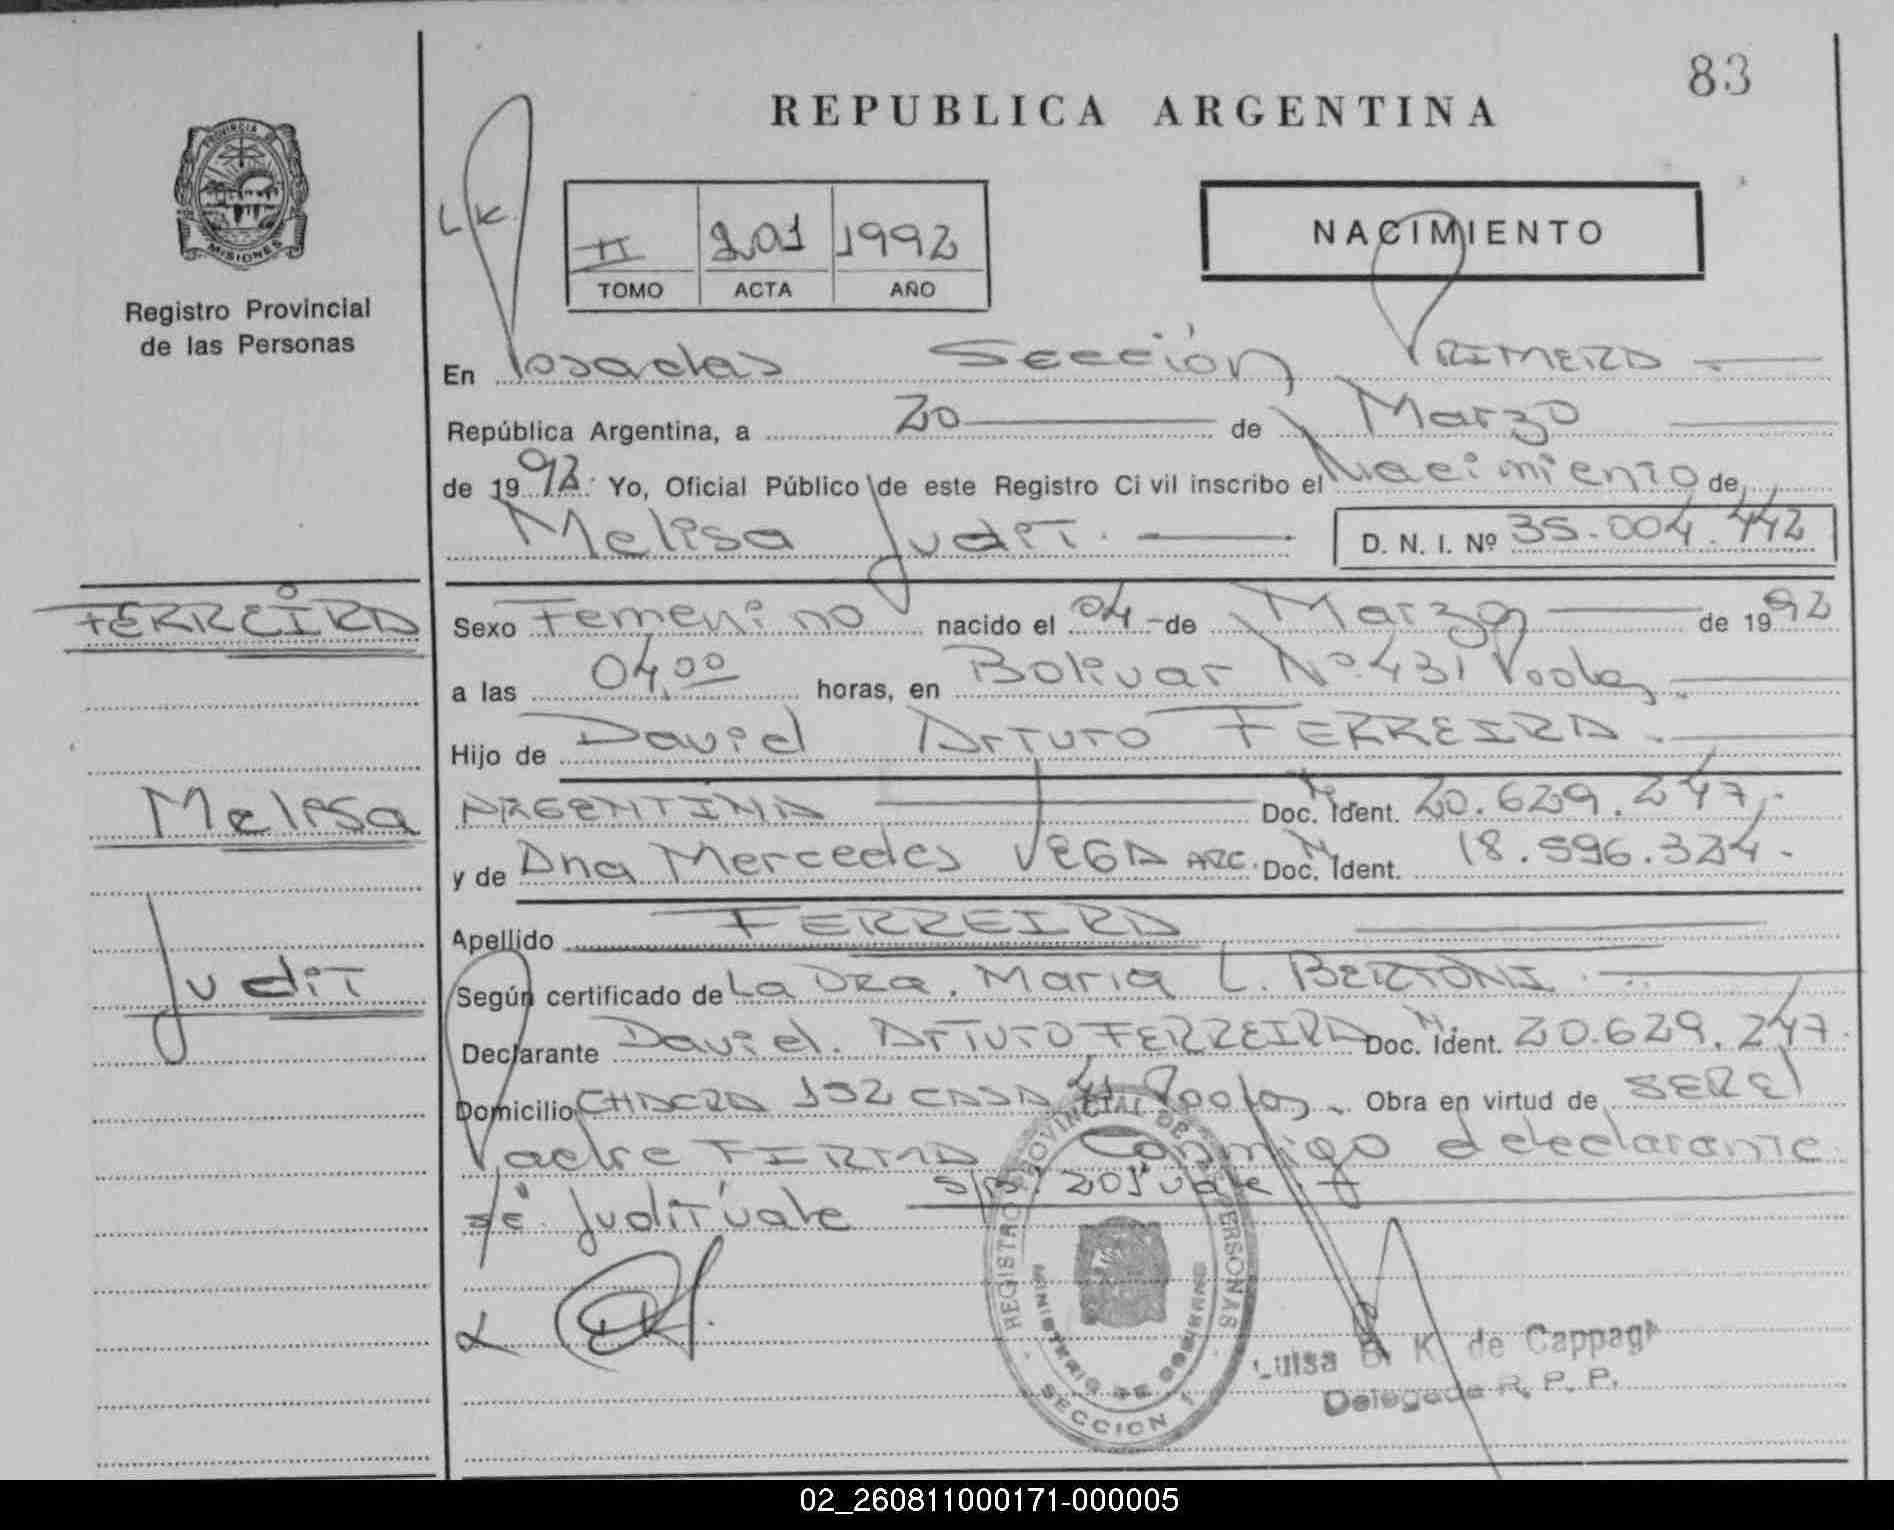 83
REPUBLICA ARGENTINA
PROVINCIA DE
MISIONES
Registro Provincial
de las Personas
L.K.
II 201 1992
TOMO ACTA AÑO
NACIMIENTO
En Posadas Sección PRIMERA
República Argentina, a 20 de Marzo
de 1992. Yo, Oficial Público de este Registro Civil inscribo el Nacimiento de
Melisa Judit. D. N. I. Nº 35.004.442
FERREIRA
Melisa
Judit
Sexo Femenino nacido el 04 de Marzo de 1992
a las 04,00 horas, en Bolivar Nº 431 Pdas
Hijo de David Arturo FERREIRA.
ARGENTINA Doc. Ident. 20.629.247.
y de Ana Mercedes VEGA ARG. Doc. Ident. 18.596.324.
Apellido FERREIRA
Según certificado de La Dra. Maria L. BERTONI.
Declarante David Arturo FERREIRA Doc. Ident. 20.629.247.
Domicilio CHACRA 152 CASA 41 Pdas. Obra en virtud de SER el
Padre FIRMA Conmigo el declarante.
S/R. 201 vale.
Judit vale
REGISTRO PROVINCIAL DE PERSONAS
MINISTERIO DE GOBIERNO
SECCION 1
Luisa B. K. de Cappag
Delegada R. P. P.
02_260811000171-000005